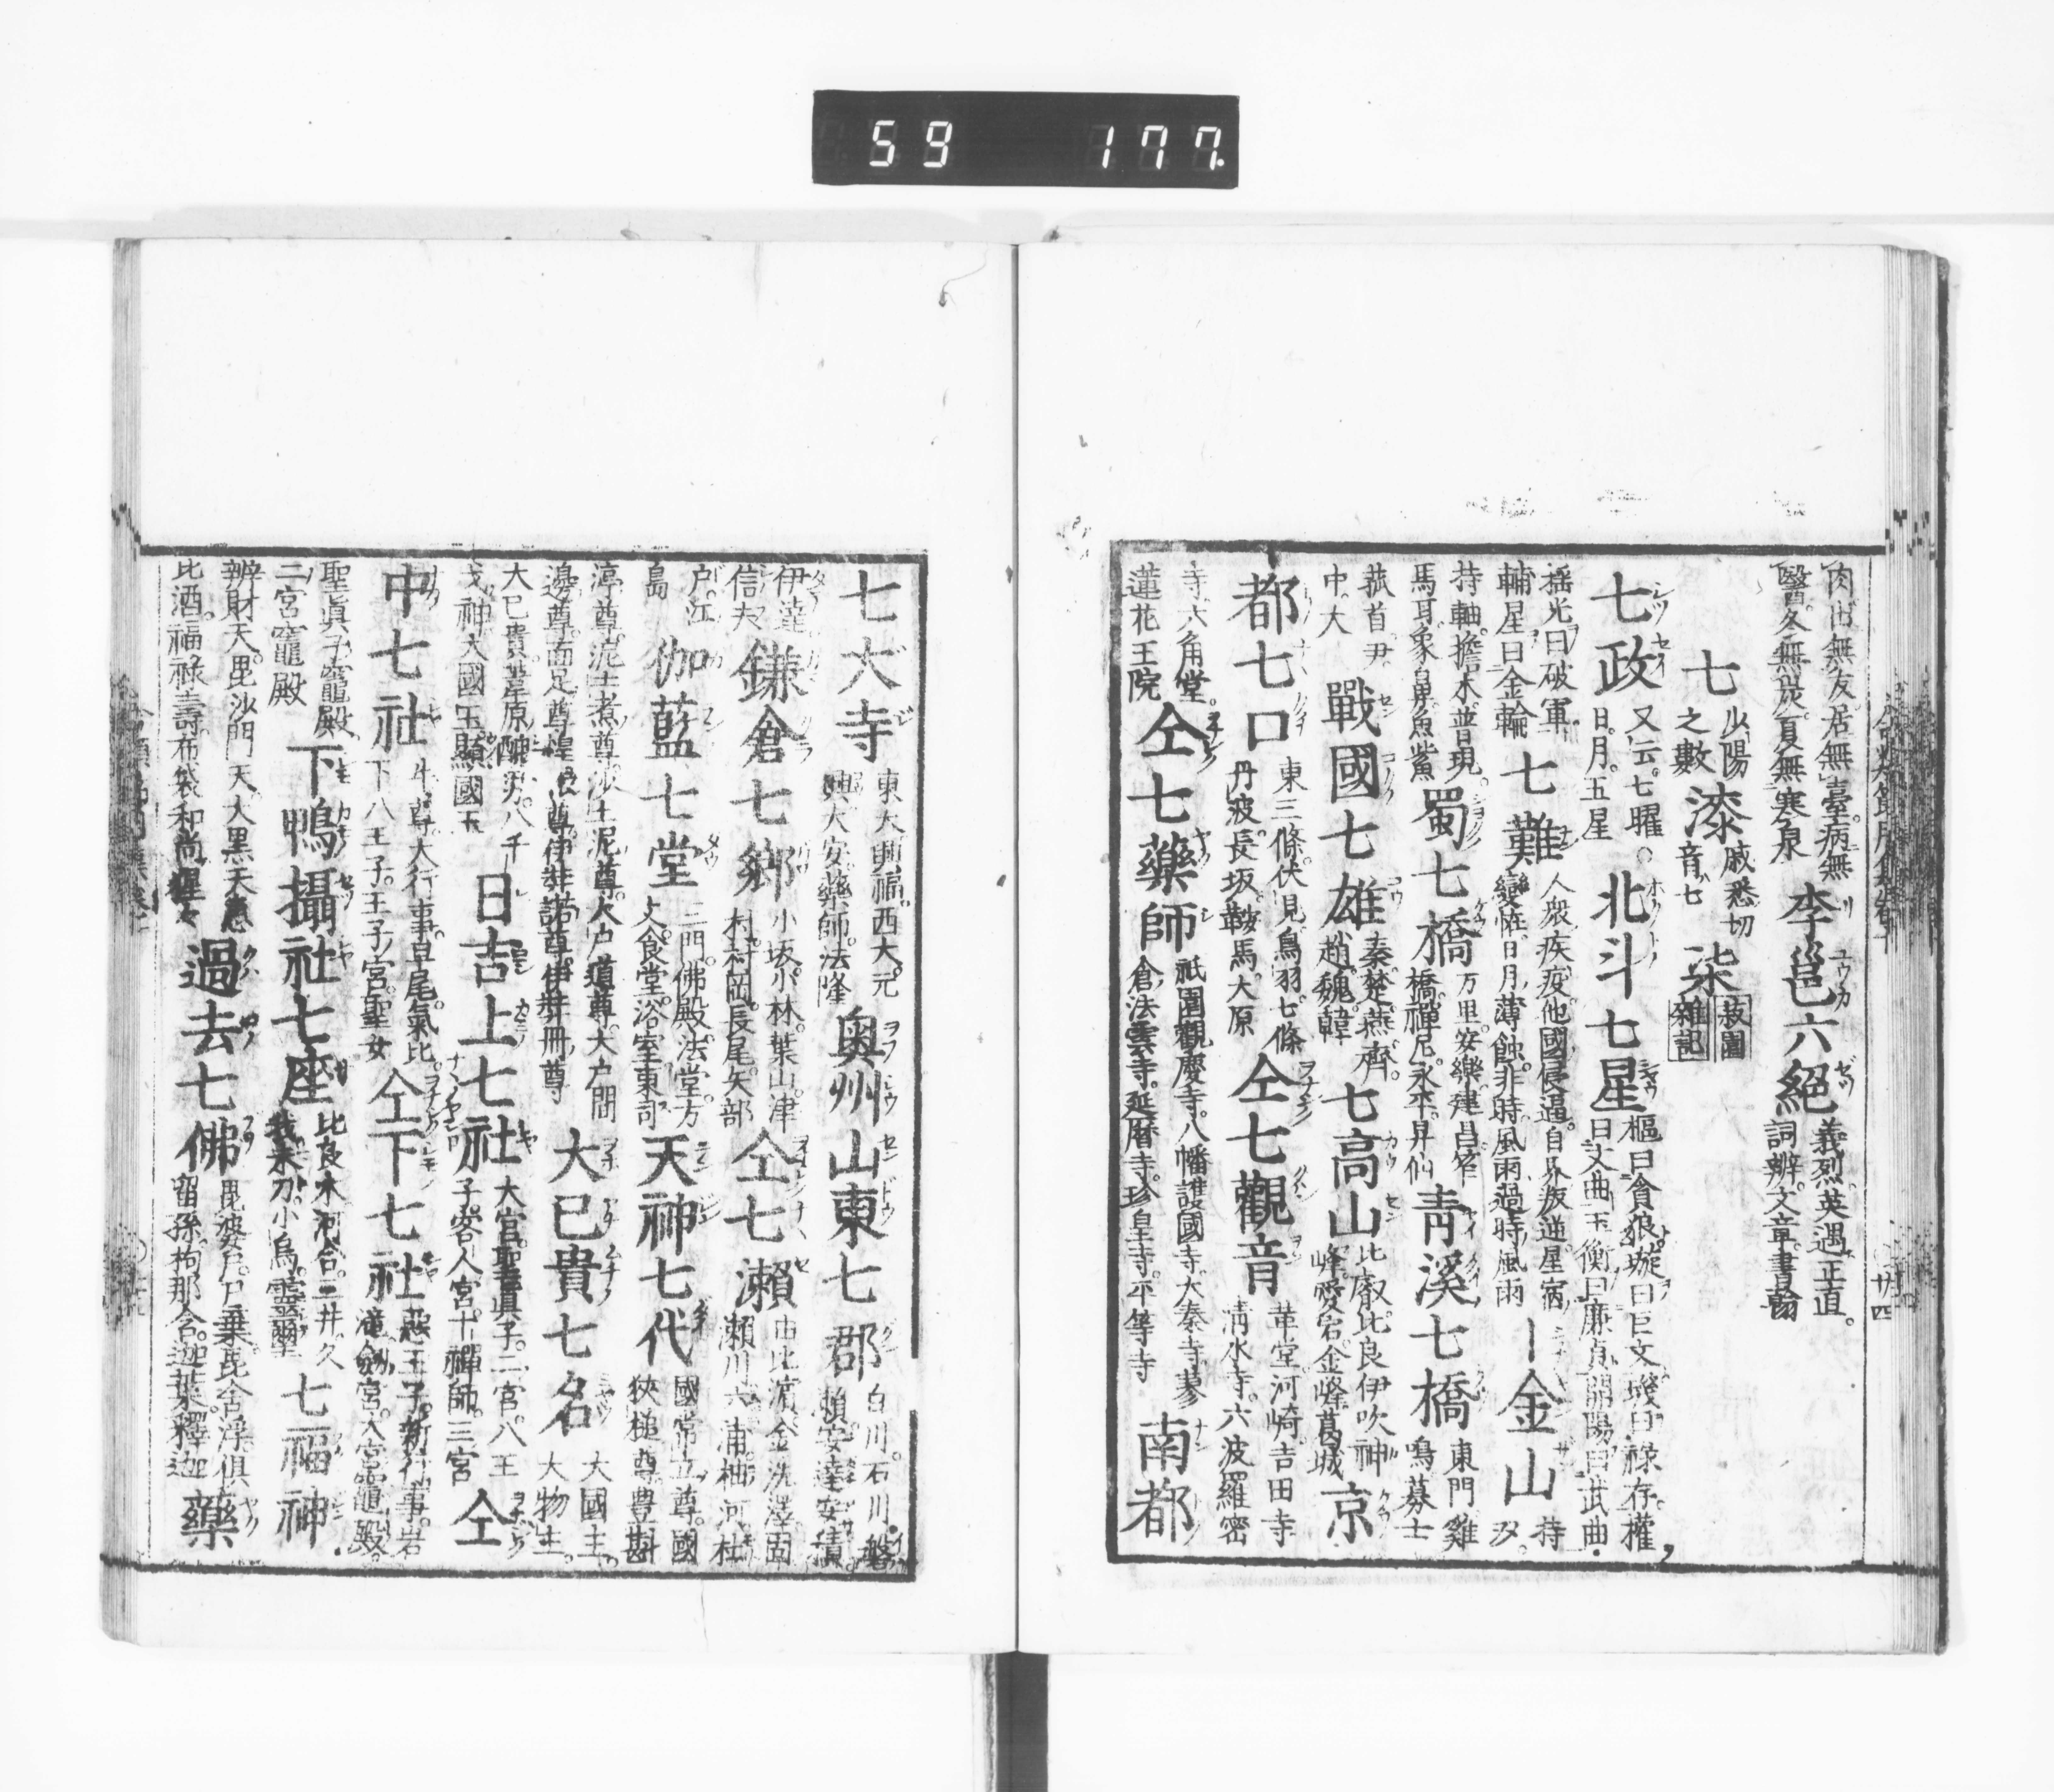 59 177
肉出無友居無臺病無
醫冬無炭夏無寒泉
李邕六絕
義烈英遇正直
詞辨文章書翰
七
少陽
之數
漆
戚悉切
音七
柒
菽園
雜記
七政
又云七曜
日月五星
北斗七星
樞曰貪狼璇曰巨文璣曰祿存權
曰文曲玉衡曰廉貞開陽曰武曲
揺光曰破軍
輔星曰金輪
七難
人衆疾疫他國侵逼自界叛逆星宿
變恠日月薄蝕非時風雨過時風雨
一金山
持
双
持軸擔木普現
馬耳象鼻魚觜
蜀七橋
万里安樂建昌笮
橋禪尼永平昇仙
青溪七橋
東門雞
鳴募士
菰首尹
中大
戰國七雄
秦楚燕齊
趙魏韓
七高山
比叡比良伊吹神
峰愛宕金峰葛城
京
都七口
東三條伏見鳥羽七條
丹波長坂鞍馬大原
仝七觀音
革堂河崎吉田寺
清水寺六波羅密
寺六角堂
蓮花王院
仝七藥師
祇園觀慶寺八幡護國寺大秦寺
倉法雲寺延曆寺珍皇寺平等寺
南都
七大寺
東大興福西大元
興大安藥師法隆
奥州山東七郡
白川石川
安達安積
伊達
信夫
鎌倉七鄉
小坂小林葉山津
村村岡長尾矢部
仝七瀬
由比濱金洗澤固
瀬川六浦柚河杜
户江
島
伽藍七堂
三門佛殿法堂方
丈食堂浴室東司
天神七代
國常立尊國
狹槌尊豊斟
渟尊泥土煮尊沙土泥尊大户道尊大户間
邊尊面足尊惶根尊伊弉諾尊伊弉冊尊
大已貴七名
大國主
大物主
大已貴葦原醜男八千
戈神大國玉顯國玉
日吉上七社
大宮聖眞子二宮八王
子客人宮十禪師三宮
仝
中七社
牛尊大行事早尾氣比
下八王子王子宮聖女
仝下七社
惡王子新行事岩
瀧劔宮大宮竈殿
聖眞子竈殿
二宮竈殿
下鴨攝社七座
比良木河合三井久
我末刀小烏靈璽
七福神
辨財天毘沙門天大黒天惠
比酒福祿壽布袋和尚猩々
過去七佛
毘婆尸尸棄毘舍浮俱
留孫拘那含迦葉釋迦
藥